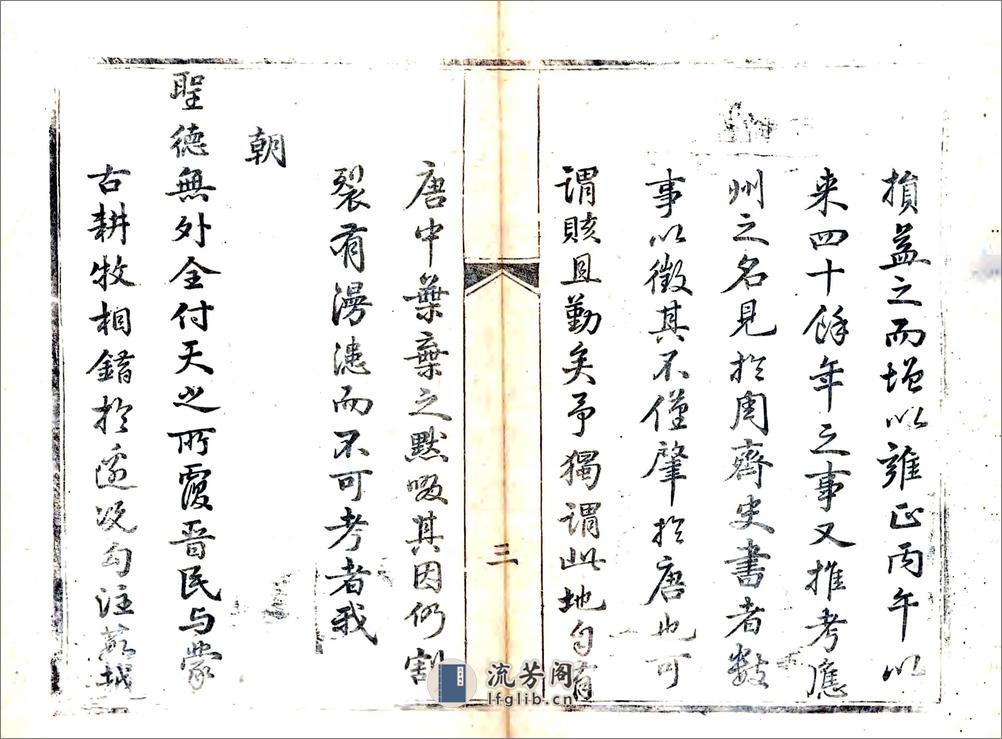 損益之而增以雍正丙午以
来四十餘年之事又推考應
州之名見於周齊史書者數
事以徵其不僅肇於唐也可
謂賅且勤矣予獨謂此地自有
唐中葉棄之默啜其因仍割
裂有漫漶而不可考者我
朝
聖德無外全付天之所覆晉民与蒙
古耕牧相錯於邊況勾注
三
流芳阁
lfglib.cn